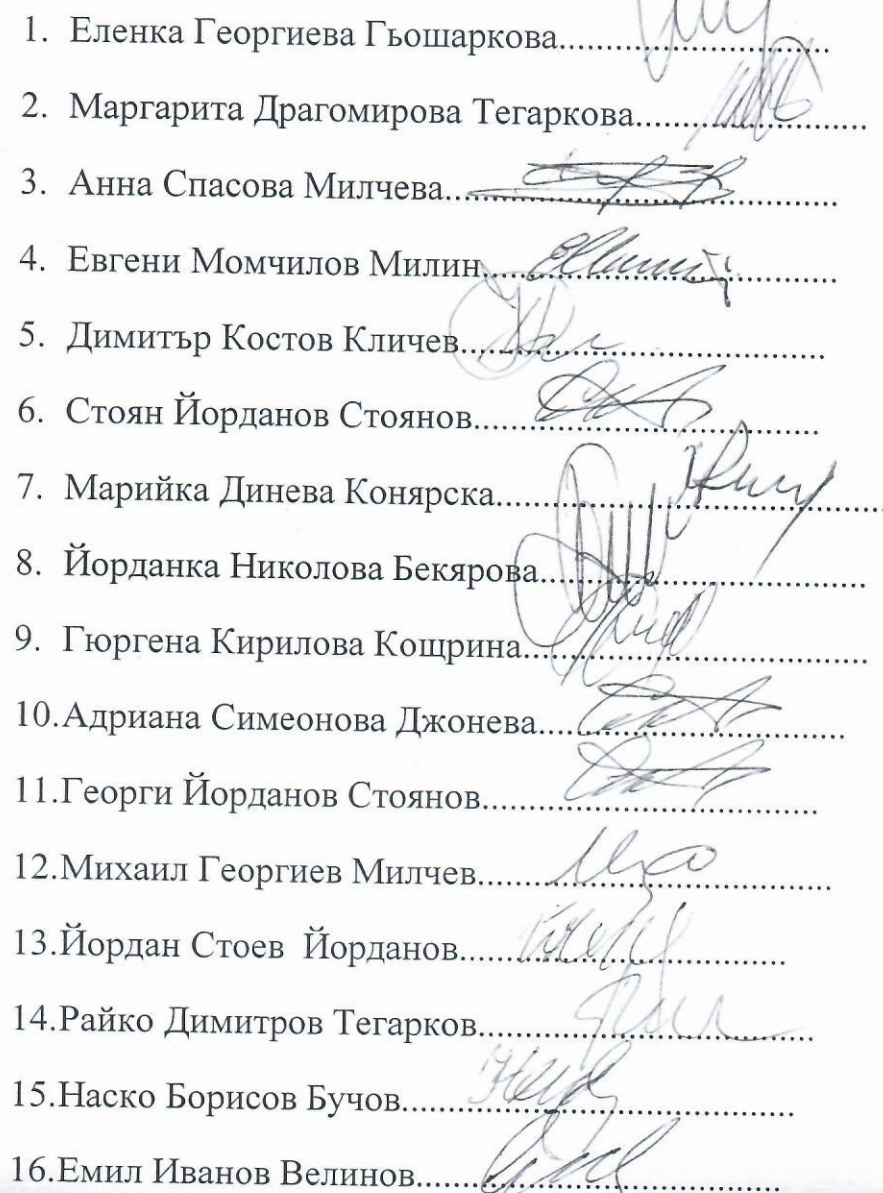 1. Еленка Георгиева Гьошаркова..............................
2. Маргарита Драгомирова Тегаркова..........................
3. Анна Спасова Милчева.............................................
4. Евгени Момчилов Милин........................................
5. Димитър Костов Кличев.........................................
6. Стоян Йорданов Стоянов.......................................
7. Марийка Динева Конярска...........................................
8. Йорданка Николова Бекярова....................................
9. Гюргена Кирилова Кощрина......................................
10.Адриана Симеонова Джонева..................................
11.Георги Йорданов Стоянов.....................................
12.Михаил Георгиев Милчев.......................................
13.Йордан Стоев  Йорданов....................................
14.Райко Димитров Тегарков.....................................
15.Наско Борисов Бучов............................................
16.Емил Иванов Велинов.........................................